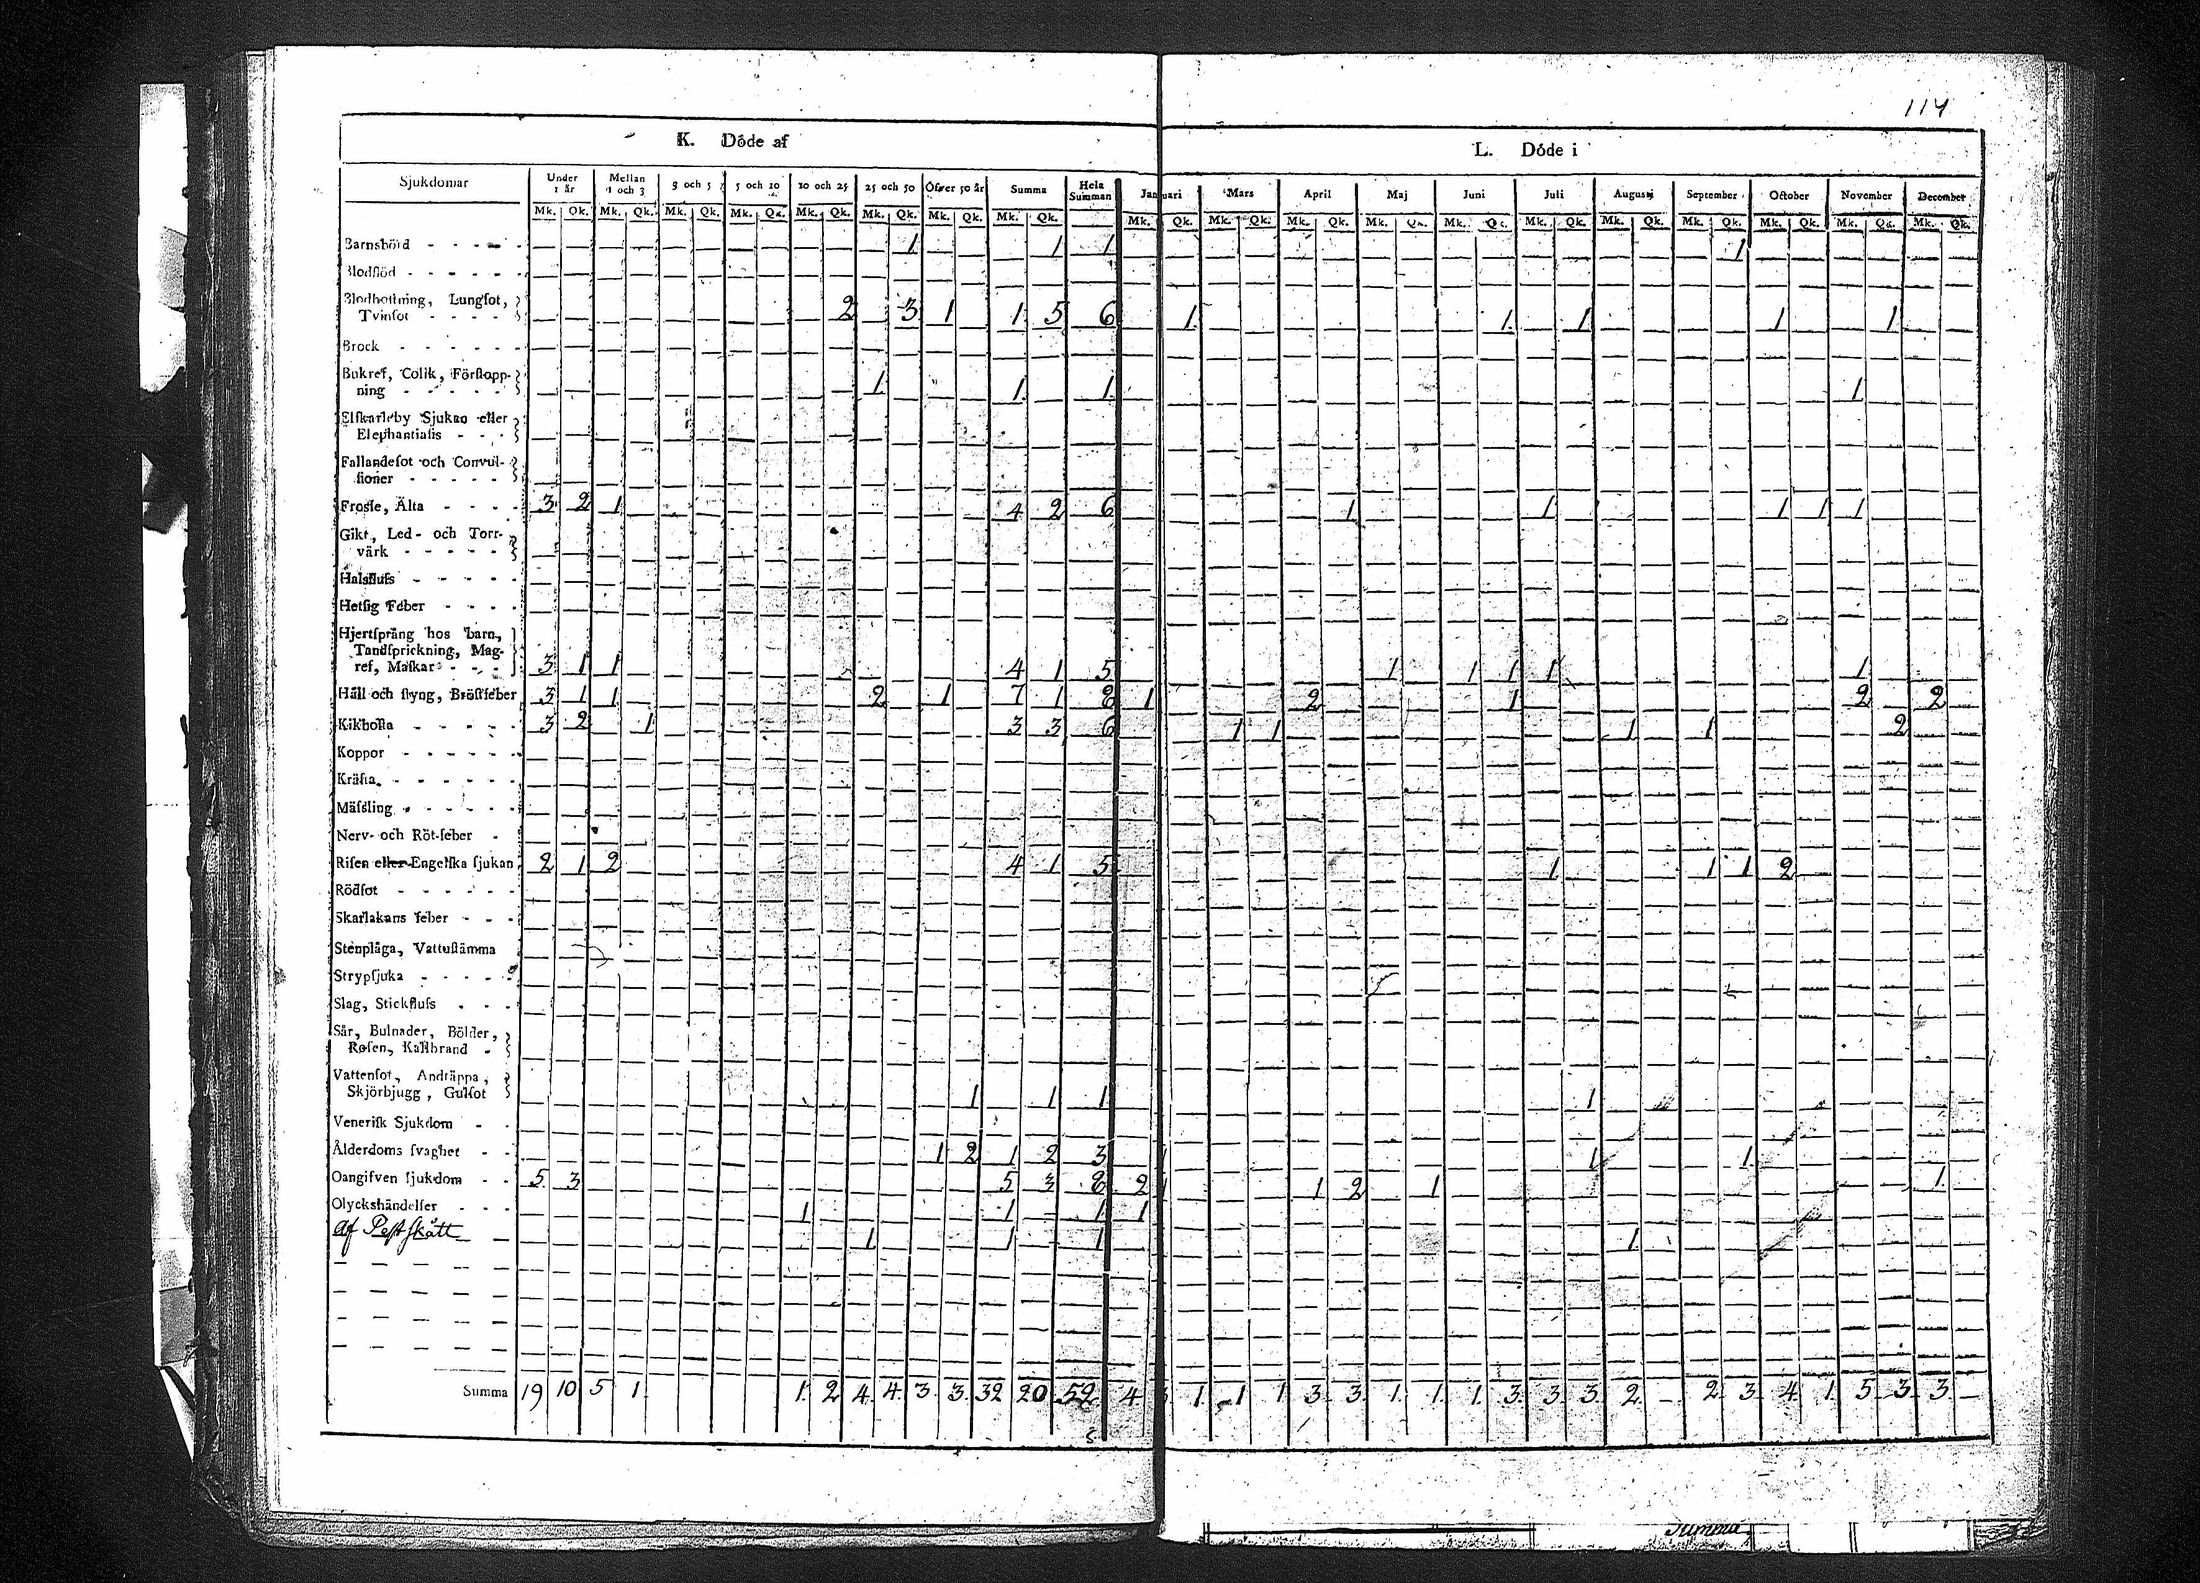 114
K. Döde af
L. Döde i
Sjukdomar Under 1 år Mellan 1 och 3 3 och 5 5 och 10 10 och 25 25 och 50 Öfver 50 år Summa Hela Summan Januari Mars April Maj Juni Juli Augusti September October November December
Mk. Qk. Mk. Qk. Mk. Qk. Mk. Qk. Mk. Qk. Mk. Qk. Mk. Qk. Mk. Qk. Mk. Qk. Mk. Qk. Mk. Qk. Mk. Qk. Mk. Qk. Mk. Qk. Mk. Qk. Mk. Qk. Mk. Qk. Mk. Qk. Mk. Qk.
Barnsbörd 1 1 1 1
Blodflöd
Blodhostning, Lungsot,
Tvinsot 2 3 1 1 5 6 1 1 1 1 1
Brock
Bukref, Colik, Förstopp-
ning 1 1 1 1
Elfkarleby Sjukan eller
Elephantiasis
Fallandesot och Convul-
sioner
Frossa, Älta 3 2 1 4 2 6 1 1 1 1 1
Gikt, Led- och Torr-
värk
Halsfluss
Hetsig Feber
Hjertsprång hos barn,
Tandsprickning, Mag-
ref, Maskar 3 1 1 4 1 5 1 1 1 1 1
Håll och styng, Bröstfeber 3 1 1 2 1 7 1 8 1 2 1 2 2
Kikhosta 3 2 1 3 3 6 1 1 1 1 2
Koppor
Kräfta
Mässling
Nerv- och Röt-feber
Risen eller Engelska sjukan 2 1 2 4 1 5 1 1 1 2
Rödsot
Skarlakans feber
Stenplåga, Vattustämma
Strypsjuka
Slag, Stickfluss
Sår, Bulnader, Bölder,
Rosen, Kallbrand
Vattensot, Andtäppa,
Skjörbjugg, Gulsot 1 1 1 1
Venerisk Sjukdom
Ålderdoms svaghet 1 2 1 2 3 1 1 1
Oangifven sjukdom 5 3 5 3 8 2 1 1 2 1 1
Olyckshändelser 1 1 1 1
af Pestskått 1 1 1 1
Summa 19 10 5 1 1 2 4 4 3 3 32 20 52 4 3 1 1 1 3 3 1 1 1 3 3 3 2 - 2 3 4 1 5 3 3 -
Summa